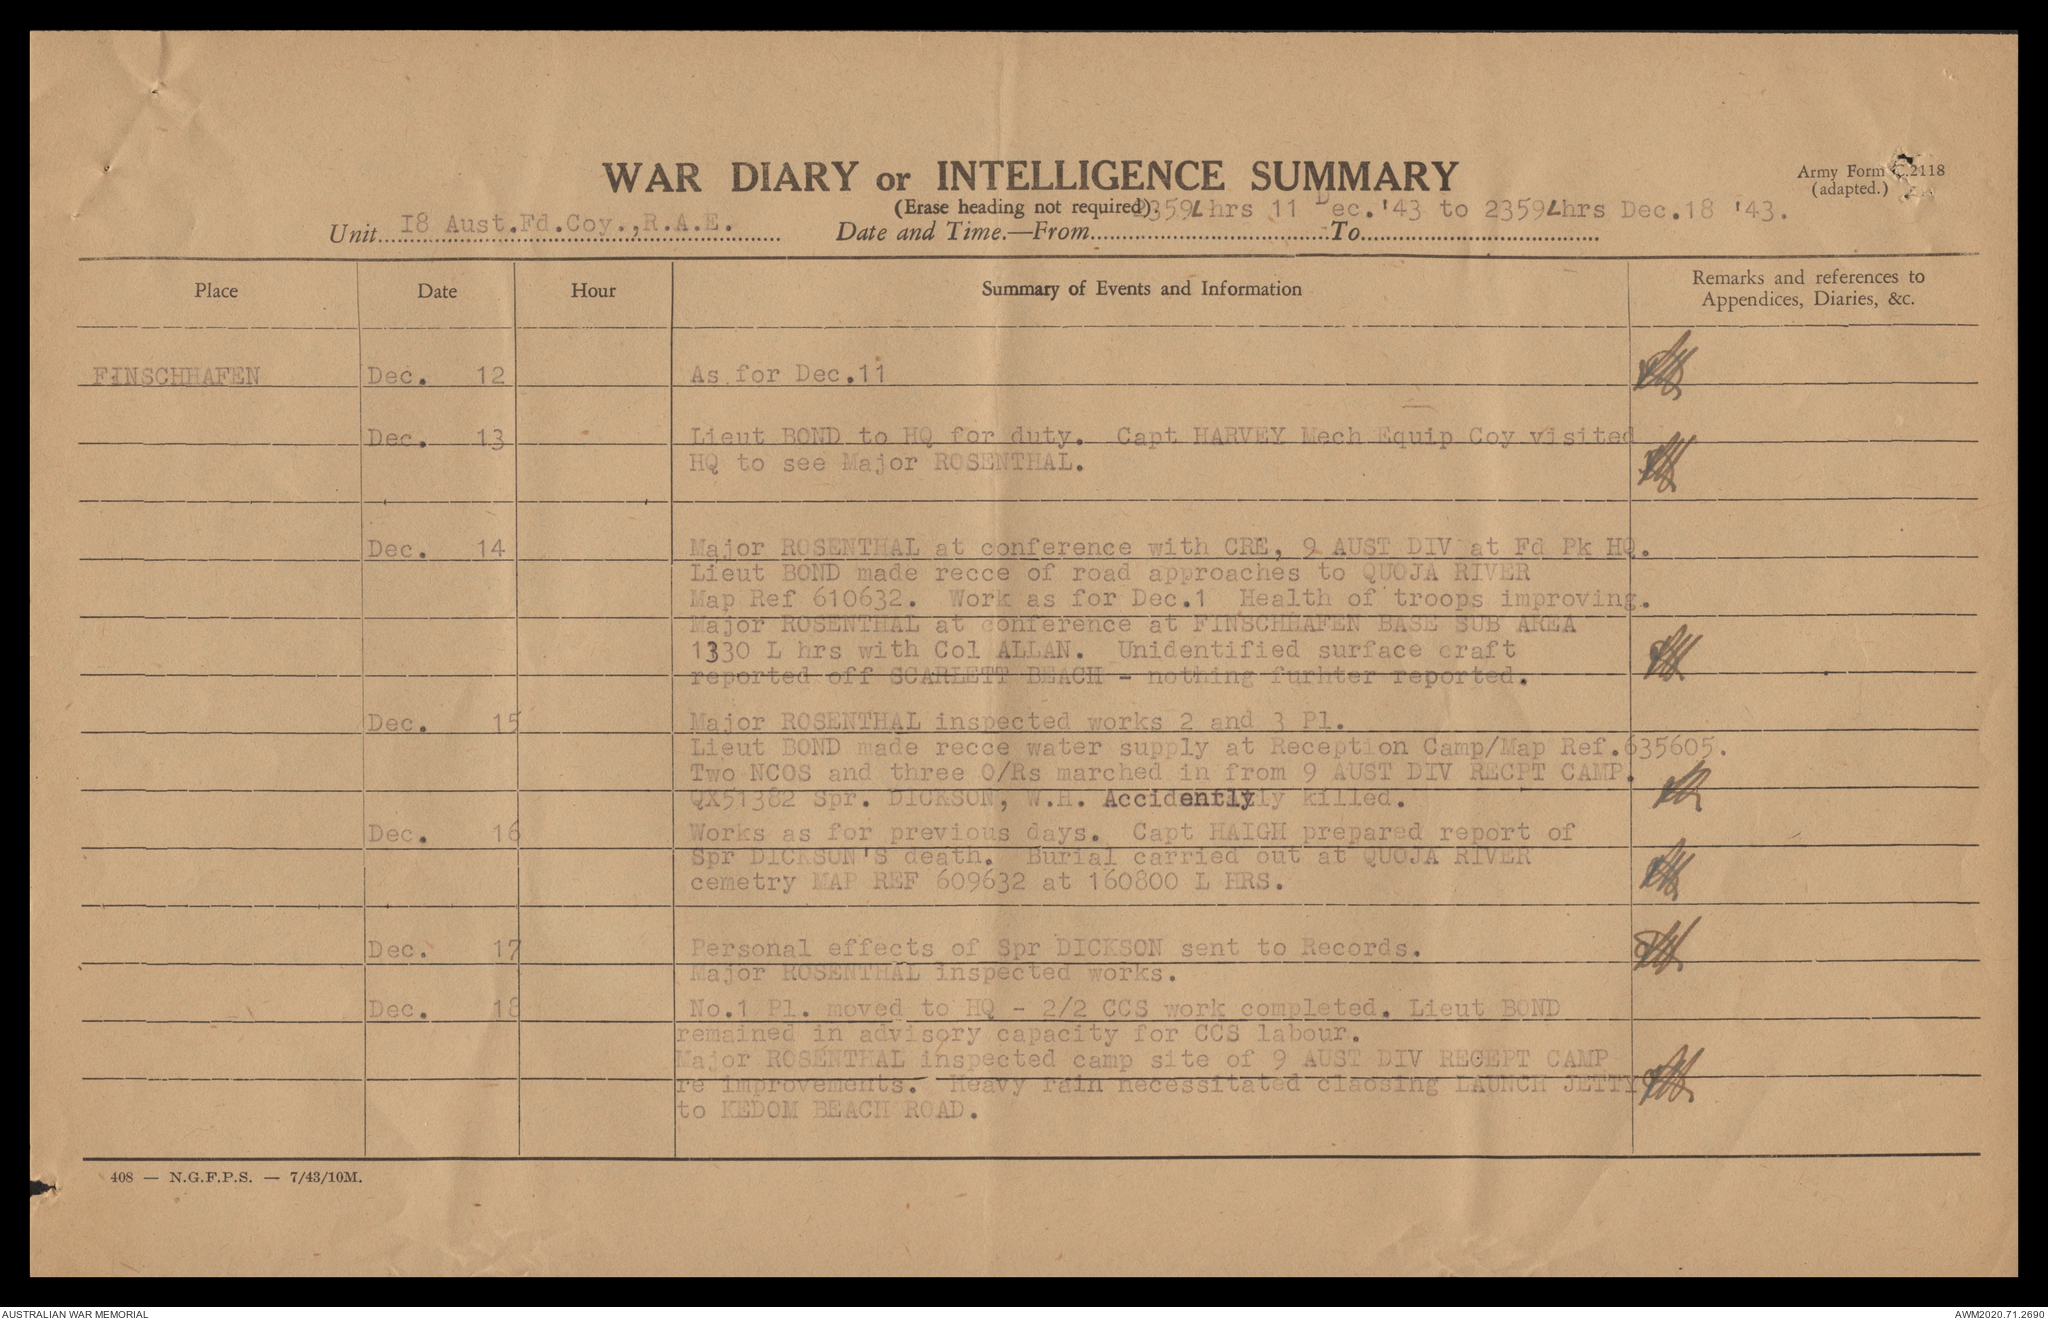 WAR DIARY or INTELLIGENCE SUMMARY
Army Form C.2118
(adapted.)
(Erase heading not required). 2359L hrs 11 Dec.'43 to 2359L hrs Dec.18 '43.
Unit 18 Aust.Fd.Coy.,R.A.E. Date and Time.—From To
Place Date Hour Summary of Events and Information Remarks and references to
Appendices, Diaries, &c.
FINSCHHAFEN Dec. 12 As for Dec.11
Dec. 13 Lieut BOND to HQ for duty. Capt HARVEY Mech Equip Coy visited
HQ to see Major ROSENTHAL.
Dec. 14 Major ROSENTHAL at conference with CRE, 9 AUST DIV at Fd Pk HQ.
Lieut BOND made recce of road approaches to QUOJA RIVER
Map Ref 610632. Work as for Dec.1 Health of troops improving.
Major ROSENTHAL at conference at FINSCHHAFEN BASE SUB AREA
1330 L hrs with Col ALLAN. Unidentified surface craft
reported off SCARLETT BEACH - nothing furhter reported.
Dec. 15 Major ROSENTHAL inspected works 2 and 3 Pl.
Lieut BOND made recce water supply at Reception Camp/Map Ref.635605.
Two NCOS and three O/Rs marched in from 9 AUST DIV RECPT CAMP.
QX51382 Spr. DICKSON, W.H. Accidently killed.
Dec. 16 Works as for previous days. Capt HAIGH prepared report of
Spr DICKSON'S death. Burial carried out at QUOJA RIVER
cemetry MAP REF 609632 at 160800 L HRS.
Dec. 17 Personal effects of Spr DICKSON sent to Records.
Major ROSENTHAL inspected works.
Dec. 18 No.1 Pl. moved to HQ - 2/2 CCS work completed. Lieut BOND
remained in advisory capacity for CCS labour.
Major ROSENTHAL inspected camp site of 9 AUST DIV RECEPT CAMP
re improvements. Heavy rain necessitated claosing LAUNCH JETTY
to KEDOM BEACH ROAD.
408 — N.G.F.P.S. — 7/43/10M.
AUSTRALIAN WAR MEMORIAL
AWM2020.71.2690